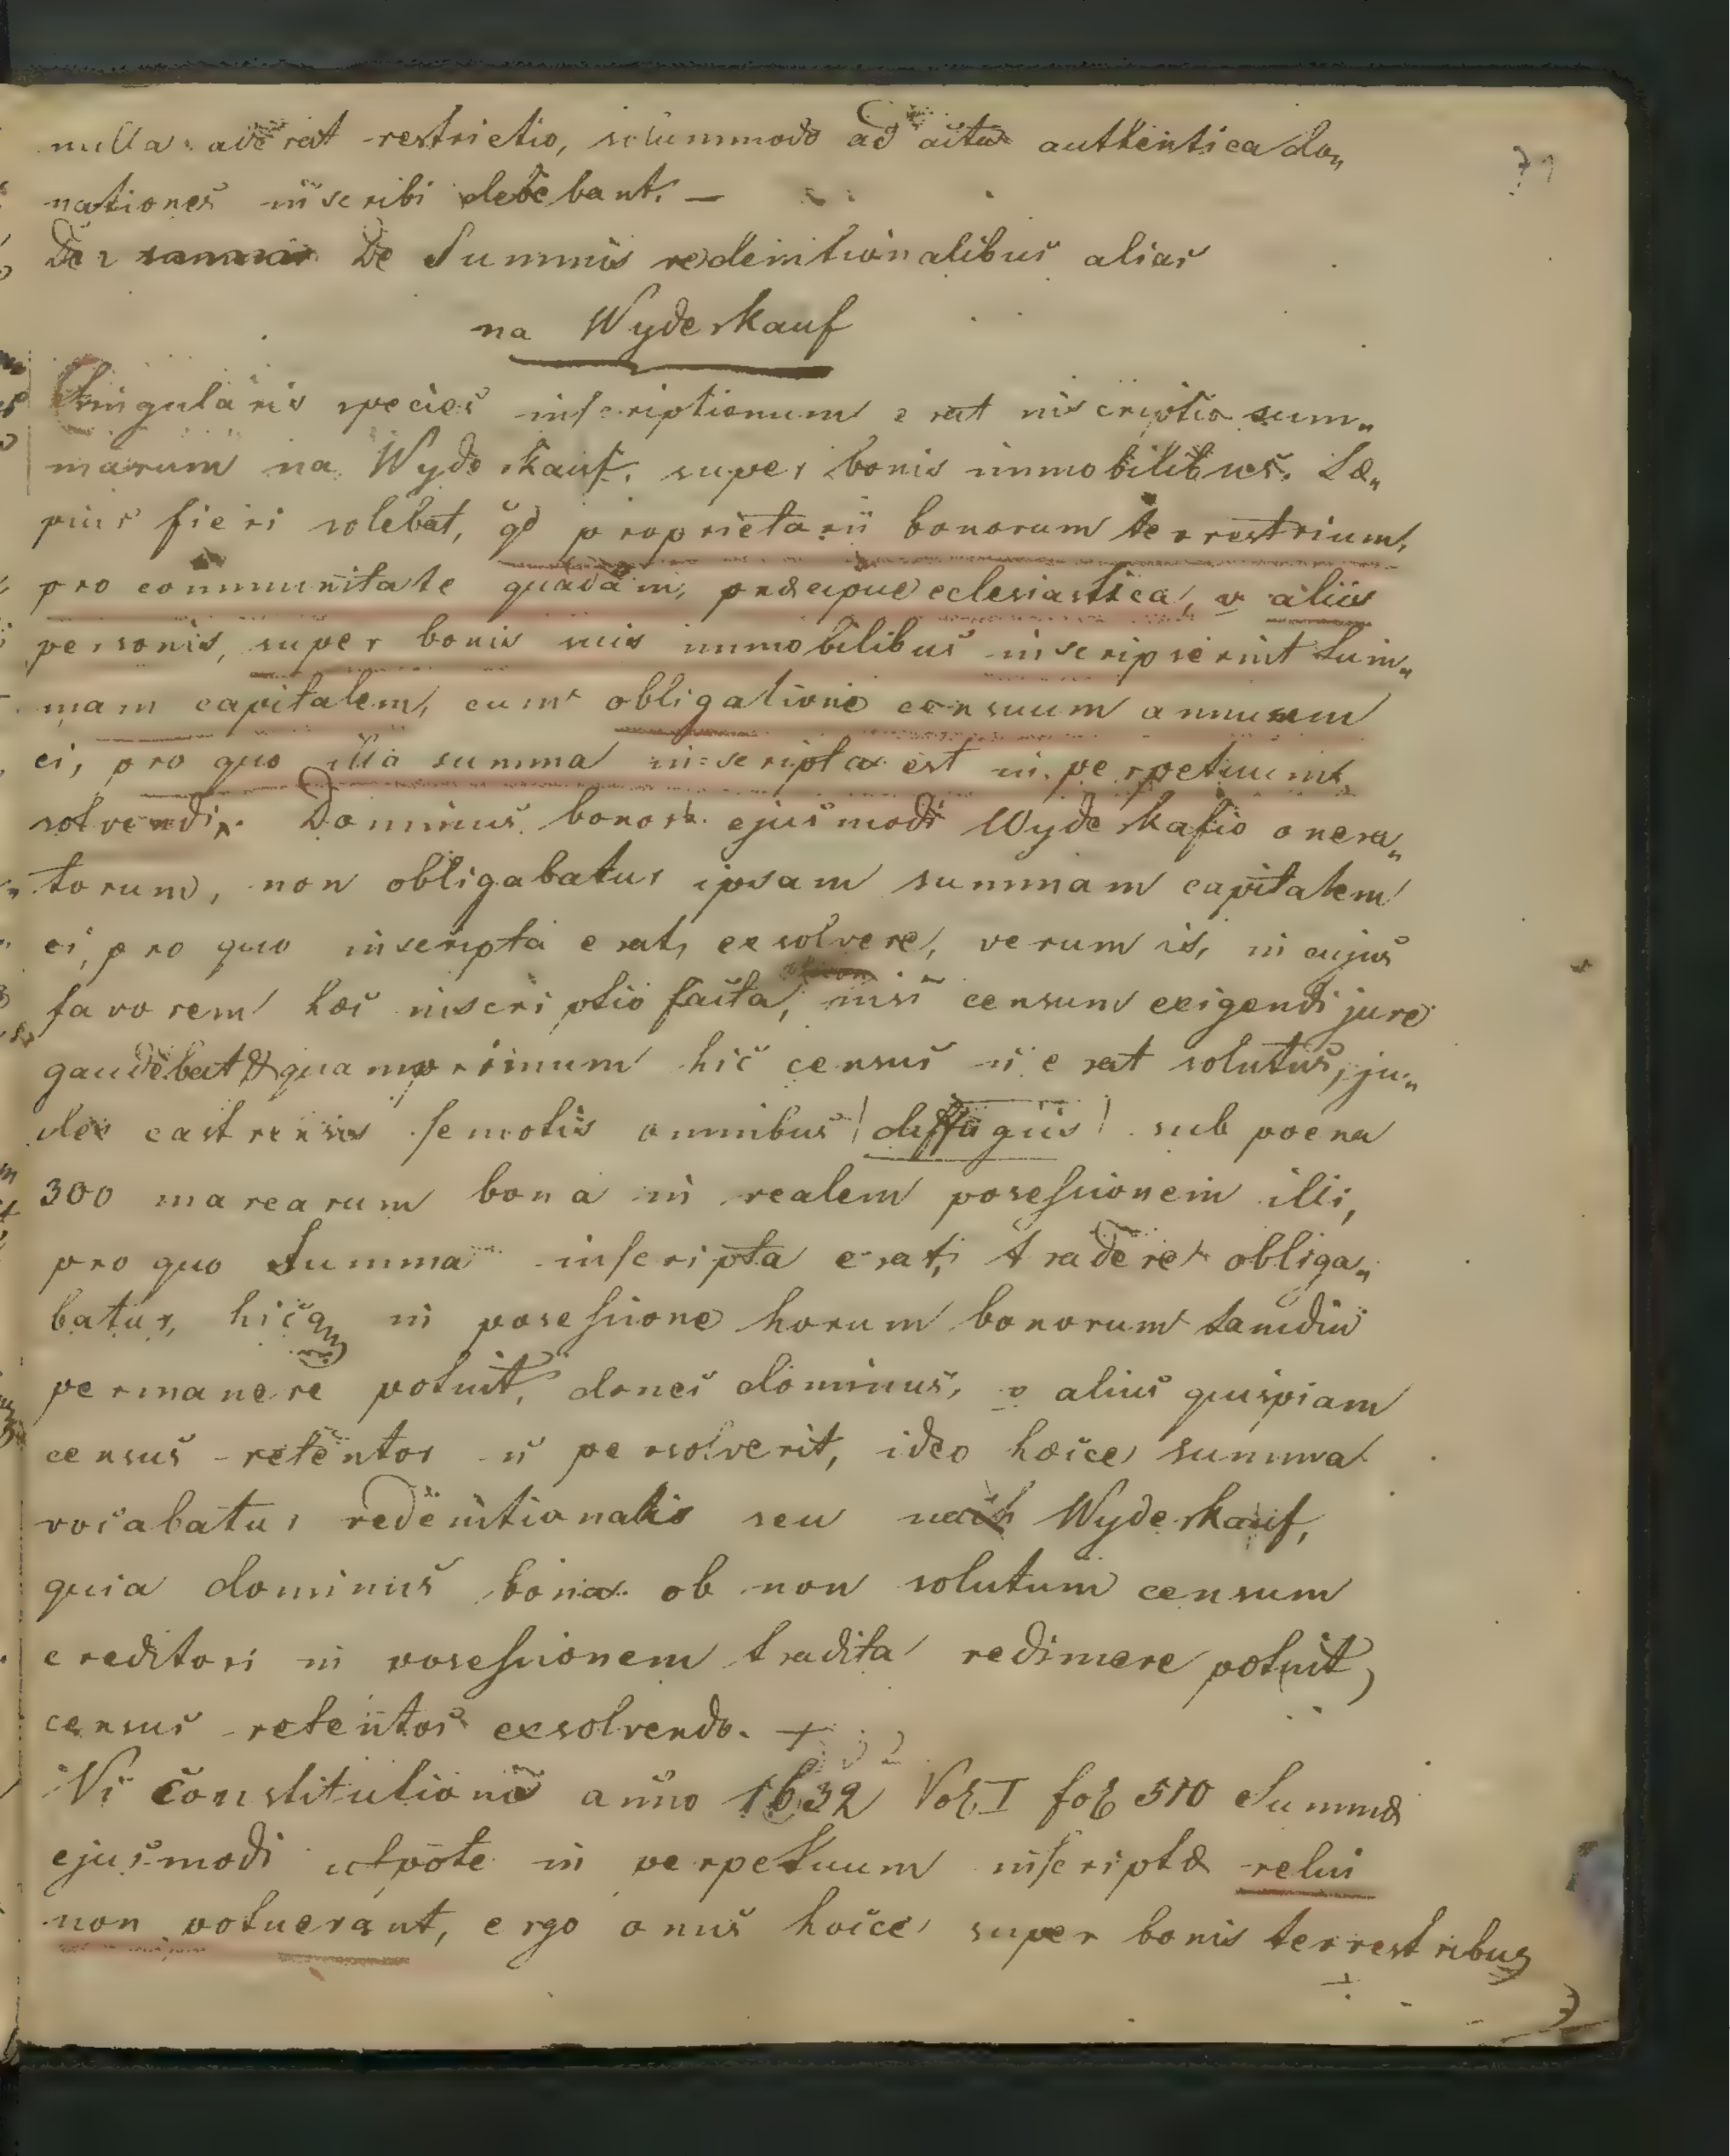 nulla aderat restrictio, solummodo ad acta authentica do„
nationes inscribi debebant. —
De De Summis redemtionalibus alias
na Wyderkauf
Singularis species inscriptionum erat inscriptio sum„
marum na Wyderkauf, super bonis immobilibus. Sæ„
pius fieri solebat, qd proprietarii bonorum terrestrium,
pro communitate quadam, præcipue eclesiastica, v aliis
personis, super bonis suis immobilibus inscripserint Sum„
mam capitalem, cum obligatione censuum annuum
ei, pro quo illa summa inscripta est in perpetuum,
solvendi. Dominus bonor. ejusmodi Wyderkafio onera„
torum, non obligabatur ipsam summam capitalem
ei, pro quo inscripta erat, exsolvere, verum is, in cujus
favorem hæc inscriptio facta, nisi censum exigendi jure
gaudebat & quamprimum hic census ñ erat solutus, ju„
dex castrensis semotis omnibus / diffugiis / sub poena
300 marcarum bona in realem posessionem illi,
pro quo Summa inscripta erat, tradere obliga„
batur, hicq in posessione horum bonorum tamdiu
permanere potuit, donec dominus, v alius quispiam
census retentos ñ persolverit, ideo hæcce summa
vocabatur redemtionalis seu na Wyderkauf,
quia dominus bona ob non solutum censum
creditori in posessionem tradita redimere potuit,
census retentos exsolvendo. +
Vi Constitutionis anno 1632 Vol I fol 510 Summæ
ejusmodi utpote in perpetuum inscriptæ relui
non potuerant, ergo onus hocce super bonis terrestribus